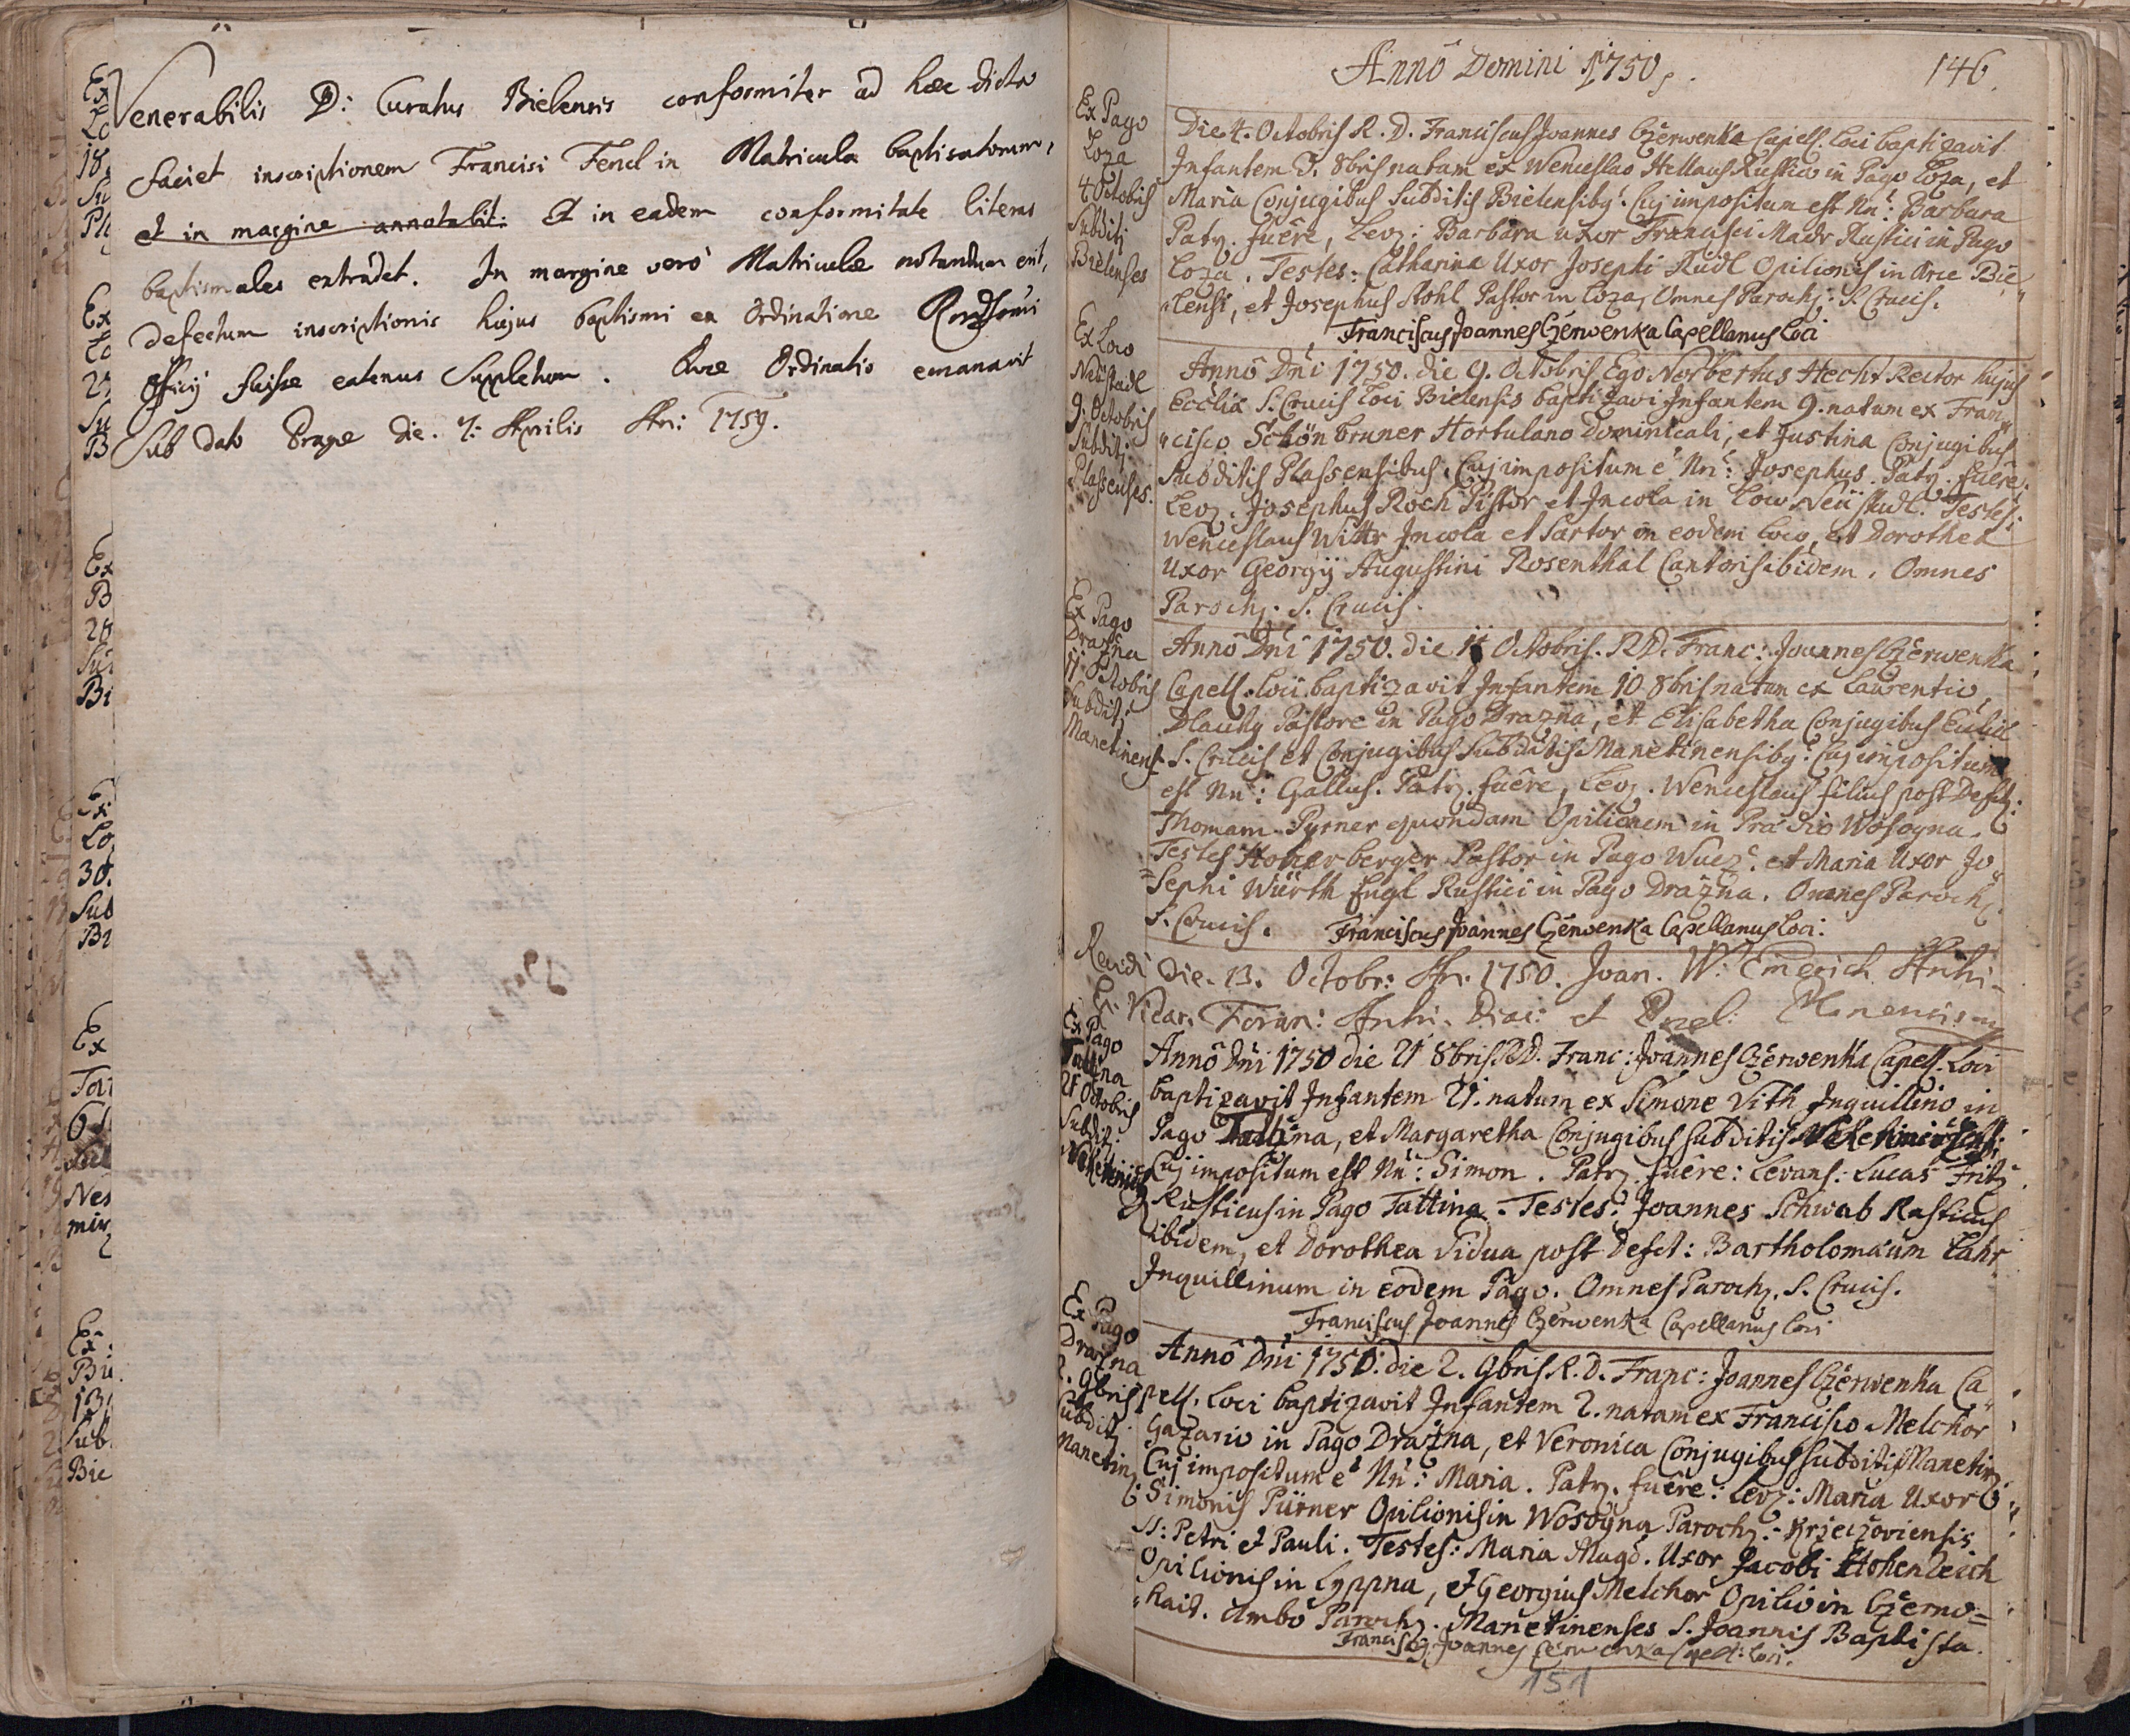 Venerabilis D: Curatus Bielensis conformiter ad hæc dicta
faciet inscriptionem Francisi Fencl in Matricula baptisatorum,
et in margine annotabit. Et in eadem conformitate literas
baptismales extradet. In margine verò Matriculæ notandum erit,
defectum inscriptionis hujus baptismi ex Ordinatione
Officij fuisse eatenus Supletum. Quæ Ordinatio emanavit
Sub dato Pragæ die. 7: Aprilis 1759.
Annô Domini 1750.
146.
Ex Pago
Loza
4 Octobris
Subditj
Bielenses
Die 4. Octobris R. D. Franciscus Joannes Czerwenka Capell. Loci baptizavit
Infantem 3. 8bris natam ex Wenceslao Hellaus Rustico in Pago Loza, et
Maria Conjugibus Subditis Bielensibq. Cuj impositum est Nn: Barbara
Patr. fuêre, Lev: Barbara uxor Francisci Madr Rustici in Pago
Loza. Testes: Catharina Uxor Josephi Rüdl Opilionis in Arce Bie„
„lensi, et Josephus Stohl Pastor in Loza, Omnes Paroch: S. Crucis.
Franciscus Joannes Czerwenka Capellanus Loci
Ex Loco
Neüstadl
9. Octobris
Subditj
Plassenses.
Annô Dni 1750. die 9. Octobris Ego Norbertus Hecht Rector hujus
Ecclia S. Crucis Loci Bielensis baptizavi Infantem 9. natum ex Fran„
„cisco Schönbruner Hortulano Dominicali, et Justina Conjugibus
Subditis Plassensibus. Cuj impositum ê Nn: Josephus. Patr. fuêre.
Lev. Josephus Roch Pistor et Incola in Loco Neüstadl. Testes:
Wenceslaus Wittr Incola et Sartor in eodem loco, et Dorothea
Uxor Georgÿ Augustini Rosenthal Cantoris ibidem. Omnes
Paroch. S. Crucis.
Ex Pago
Drazna
11 Octobris
Subditj
Manetinens
Annô Dni 1750. die 11 Octobris. R.D. Franc: Joannes Czerwenka
Capell. Loci baptizavit Infantem 10 8bris natum ex Laurentio
Dlauhy Pastore in Pago Drazna, et Elisabetha Conjugibus
S. Crucis et Conjugibus Subditis Manetinensibq: Cuj impositum
est Nn: Gallus. Patr. fuêre, Lev. Wenceslaus filius post Defct:
Thomam Pyrner quondam Opilionem in Prædio Wosogna.
Testes Hoherberger Pastor in Pago Wuez. et Maria Uxor Jo„
„sephi Würth Engl Rustici in Pago Drazna. Omnes Paroch
S. Crucis. Franciscus Joannes Czerwenka Capellanus Loci:
Die. 13. Octobr: 1750. Joan. W: Emerich Archi-
Vicar. Foran: Archi. Diac: et
Ex Pago
Tattina
21 Octobris
Subditj
Annô Dni 1750 die 21 8bris R.D. Franc: Joannes Czerwenka Capell. Loci
baptizavit Infantem 21. natum ex Simone Vith Inquillino in
Pago Tattina, et Margaretha Conjugibus subditis
Cuj impositum est Nn: Simon. Patr. fuêre: Levans: Lucas Fritz
Rusticus in Pago Tattina. Testes: Joannes Schwab Rusticus
ibidem, et Dorothea Vidua post Defct: Bartholomæum Lahr
Inquillinum in eodem Pago. Omnes Paroch. S. Crucis.
Franciscus Joannes Czerwenka Capellanus Loci
Ex Pago
Drazna
2. 9bris
Subditj
Manetin
Annô Dni 1750. die 2. 9bris R. D. Franc: Joannes Czerwenka Ca„
pell. Loci baptizavit Infantem 2. natam ex Francisco Melchor
Gazario in Pago Drazna, et Veronica Conjugibus subditis Manetin
Cuj impositum ê Nn: Maria. Patr. fuêre: Lev: Maria Uxor
Simonis Pürner Opilionis in Wosogna Paroch: Krzeczoviensis
SS: Petri et Pauli. Testes: Maria Magd. Uxor Jacobi Hohenleich
Opilionis in Lyppna, et Georgius Melchor Opilio in Czerno=
„haid. Ambo Paroch. Manetinenses S. Joannis Baptista.
Franciscq Joannes Czerwenka Capell: Loci.
151